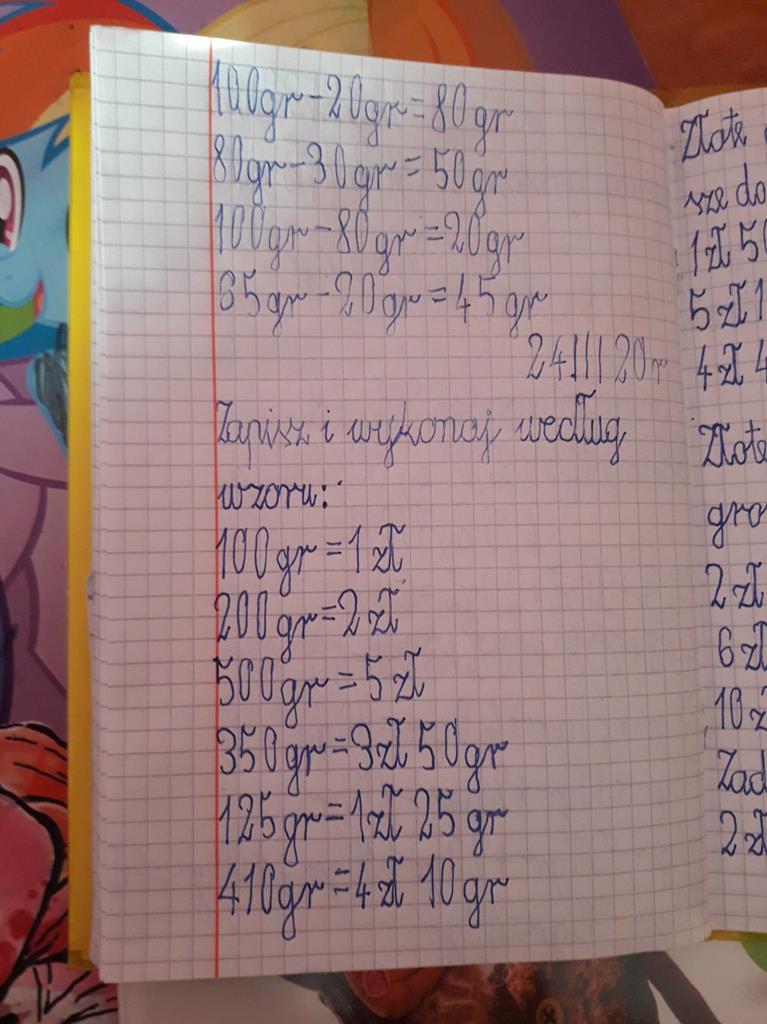 100gr-20gr=80gr
80gr-30gr=50gr
100gr-80gr=20gr
65gr-20gr=45gr
24III20r
Zapisz i wykonaj według
wzoru:
100gr=1zł
200gr=2zł
500gr=5zł
350gr=3zł 50gr
125gr=1zł 25gr
410gr=4zł 10gr
Złote
sze do
1zł 50
5zł 1
4zł 4
Złote
gro
2zł
6zł
10z
Zad
2zł